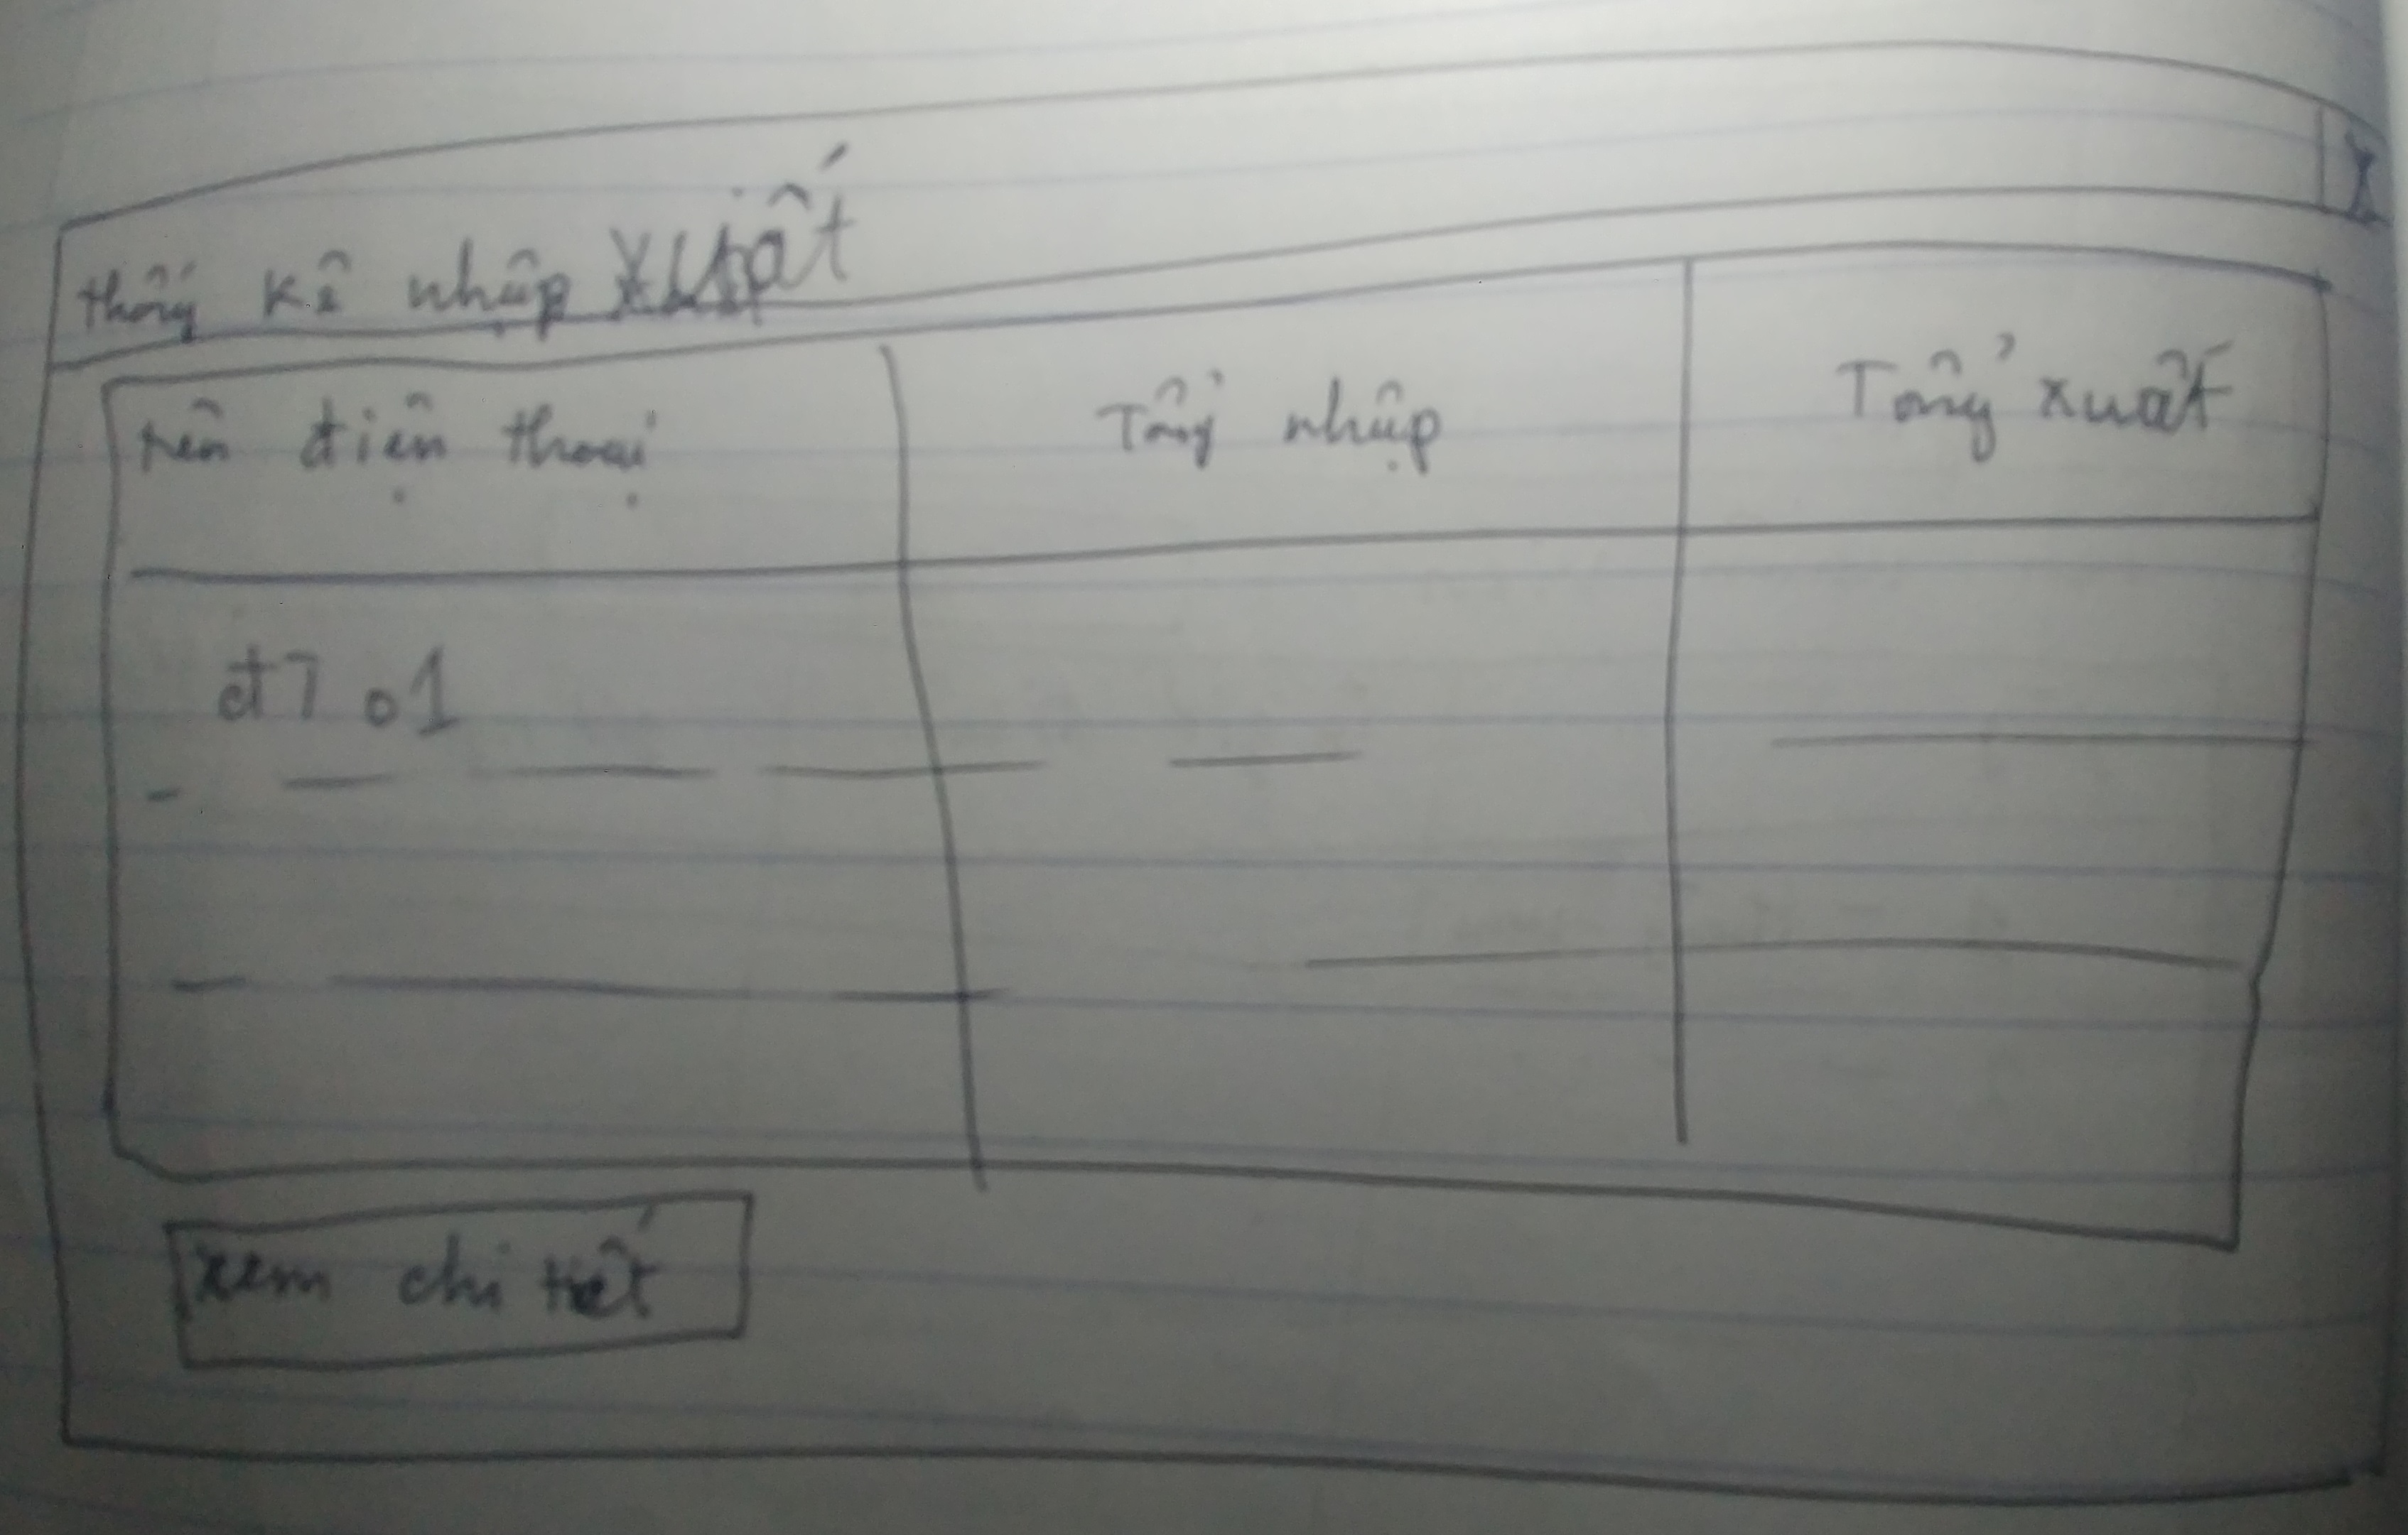 X
thống kê nhập xuất
tên điện thoại Tổng nhập Tổng xuất
đt 01
xem chi tiết